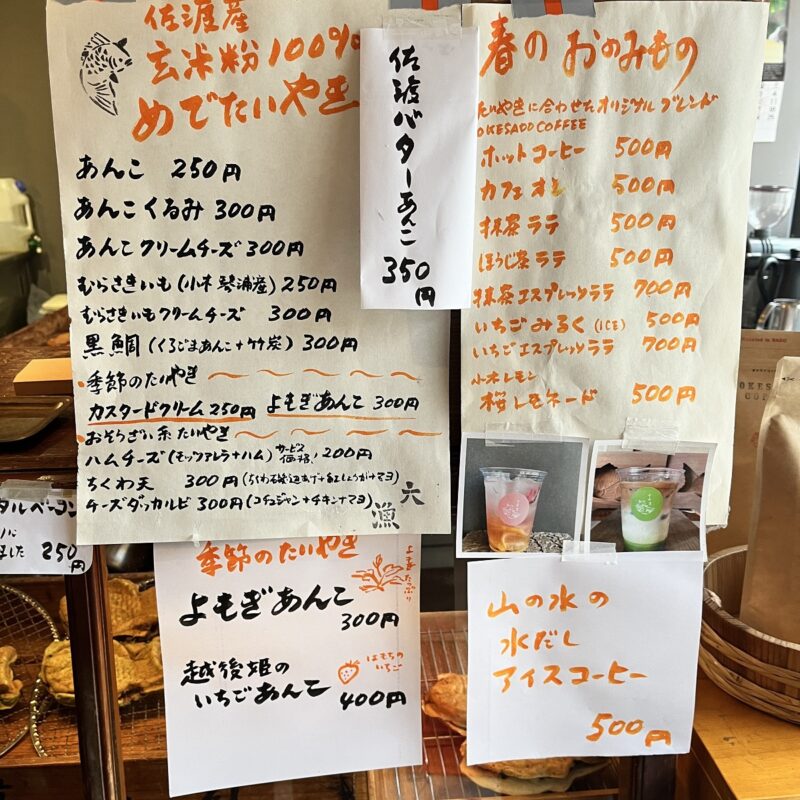 佐渡産
玄米粉100%
めでたいやき
あんこ 250円
あんこくるみ 300円
あんこクリームチーズ 300円
むらさきいも(小木 琴浦産) 250円
むらさきいもクリームチーズ 300円
黒鯛(くろごまあんこ+竹炭) 300円
・季節のたいやき
カスタードクリーム 250円 よもぎあんこ 300円
・おそうざい系たいやき
ハムチーズ(モッツァレラ+ハム) サービス価格! 200円
ちくわ天 300円(ちくわ石蓴辺あげ+紅しょうが+マヨ)
チーズダッカルビ 300円(コチュジャン+チキン+マヨ)
六
漁
佐渡バターあんこ
350円
春のおのみもの
たいやきに合わせたオリジナルブレンド
OKESADO COFFEE
ホットコーヒー 500円
カフェオレ 500円
抹茶ラテ 500円
ほうじ茶ラテ 500円
抹茶エスプレッソラテ 700円
いちごみるく(ICE) 500円
いちごエスプレッソラテ 700円
小木レモン
桜レモネード 500円
季節のたいやき
よもぎたっぷり
よもぎあんこ
300円
越後姫の
いちごあんこ
はもちの
いちご
400円
山の水の
水だし
アイスコーヒー
500円
タルベーコン
ました 250円